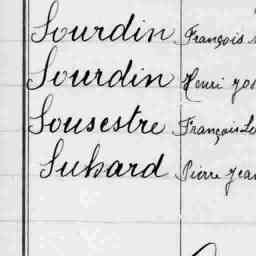 Sourdin François
Sourdin Henri
Sousestre François
Suhard Pierre Jean